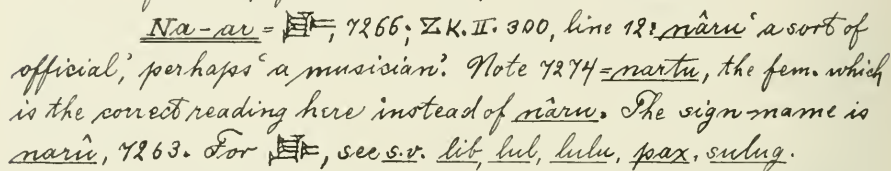 Na-ar = 𒈜, 7266; ZK. II. 300, line 12: nâru 'a sort of
official', perhaps 'a musician'. Note 7274 = nartu, the fem. which
is the correct reading here instead of nâru. The sign-name is
narû, 7263. For 𒈜, see s.v. lib, lul, lulu, pax, sulug.